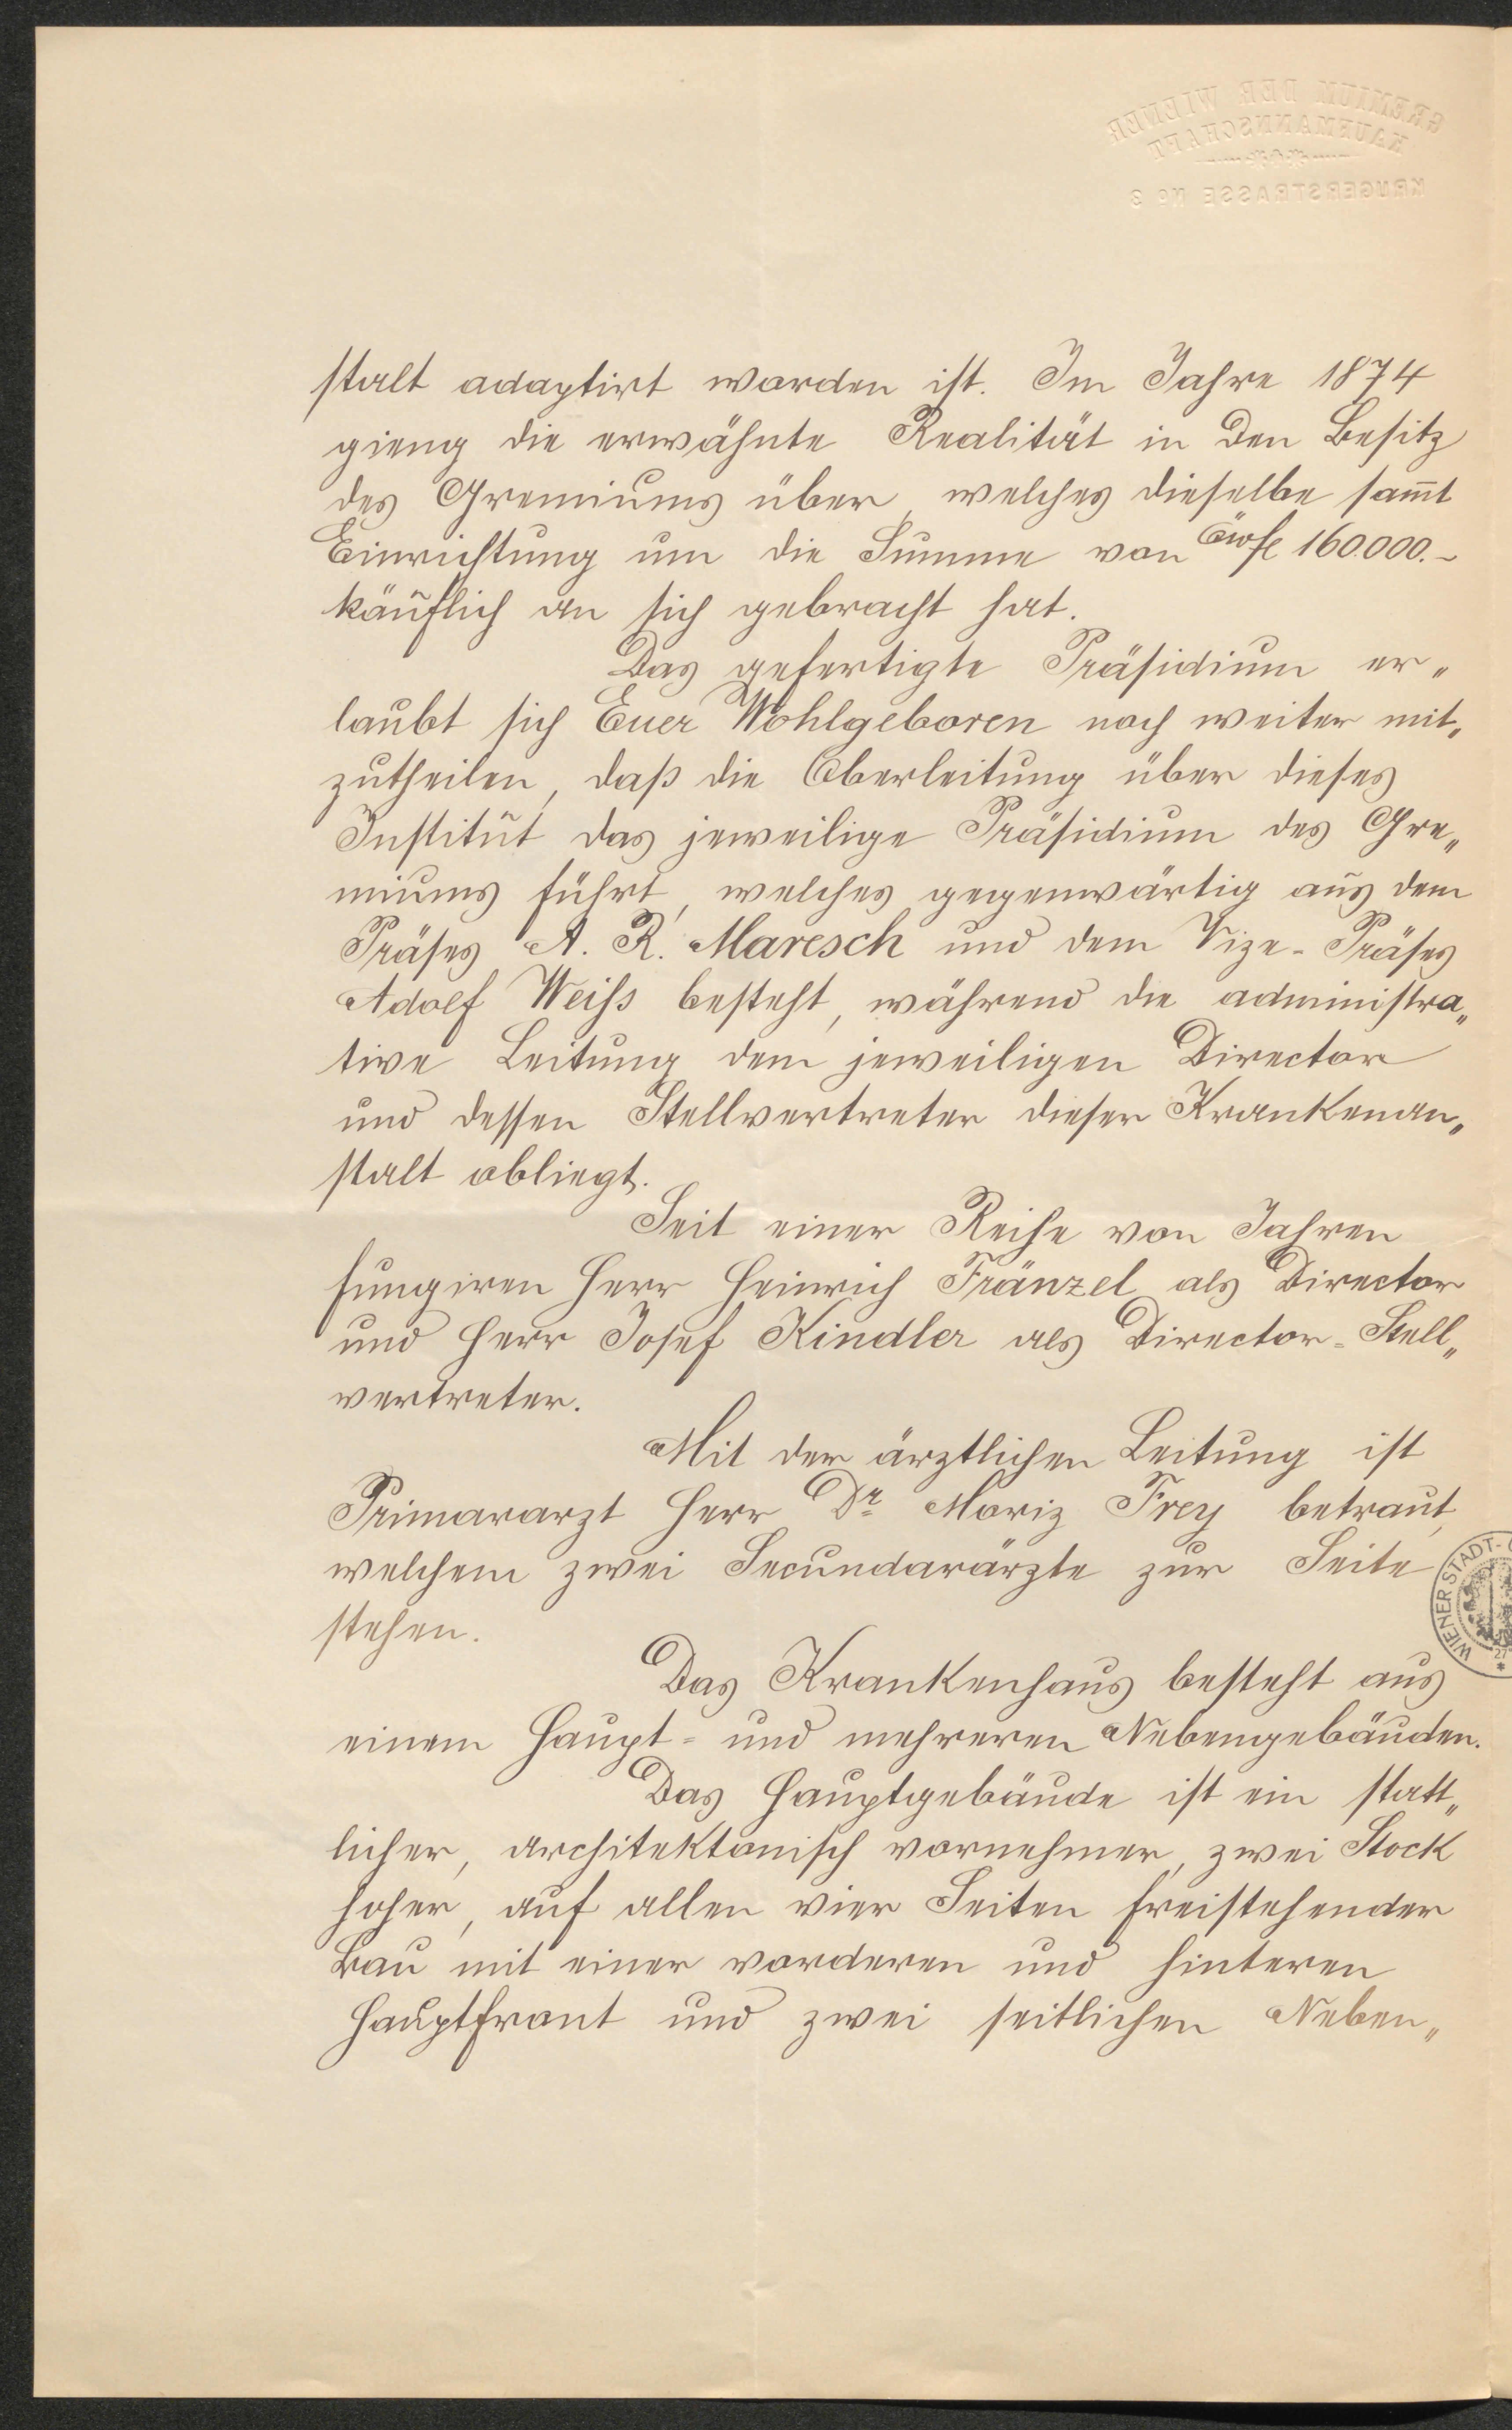 GREMIUM DER WIENER
KAUFMANNSCHAFT
KRUGERSTRASSE No 3
stalt adaptirt worden ist. Im Jahre 1874
gieng die erwähnte Realität in den Besitz
des Gremiums über, welches dieselbe sam̄t
Einrichtung um die Summe von Öwfl 160.000.-
käuflich an sich gebracht hat.
Das gefertigte Präsidium er„
laubt sich Euer Wohlgeboren noch weiter mit„
zutheilen, daß die Oberleitung über dieses
Institut das jeweilige Präsidium des Gre„
miums führt, welches gegenwärtig aus dem
Präses A. R. Maresch und dem Vize-Präses
Adolf Weiss besteht, während die administra„
tive Leitung dem jeweiligen Director
und dessen Stellvertreter dieser Krankenan„
stalt obliegt.
Seit einer Reihe von Jahren
fungiren Herr Heinrich Fränzel als Director
und Herr Josef Kindler als Director-Stell„
vertreter.
Mit der ärztlichen Leitung ist
Primararzt Herr Dr Moriz Frey betraut,
welchem zwei Secundarärzte zur Seite
stehen.
WIENER STADT-
Das Krankenhaus besteht aus
einem Haupt- und mehreren Nebengebäuden.
Das Hauptgebäude ist ein statt„
licher, architektonisch vornehmer, zwei Stock
hoher, auf allen vier Seiten freistehender
Bau mit einer vorderen und hinteren
Hauptfront und zwei seitlichen Neben„